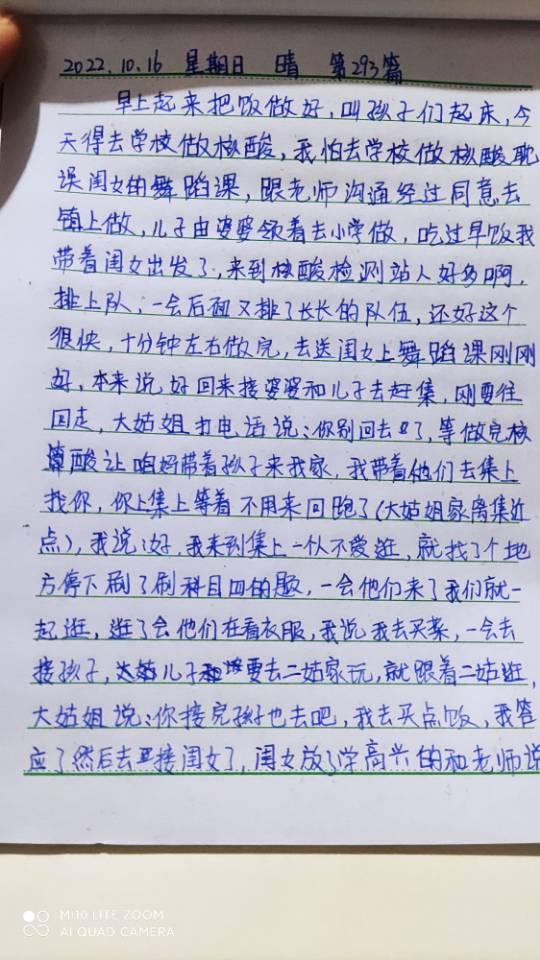 2022.10.16 星期日 晴 第293篇
早上起来把饭做好,叫孩子们起床,今
天得去学校做核酸,我怕去学校做核酸耽
误闺女的舞蹈课,跟老师沟通经过同意去
镇上做,儿子由婆婆领着去小学做,吃过早饭我
带着闺女出发了,来到核酸检测站人好多啊,
排上队,一会后面又排了长长的队伍,还好这个
很快,十分钟左右做完,去送闺女上舞蹈课刚刚
好,本来说好回来接婆婆和儿子去赶集,刚要往
回走,大姑姐打电话说:你别回去了,等做完核
酸让咱妈带着孩子来我家,我带着他们去集上
找你,你上集上等着不用来回跑了(大姑姐家离集近
点),我说:好,我来到集上一个人不爱逛,就找了个地
方停下刷了刷科目四的题,一会他们来了我们就一
起逛,逛了会他们在看衣服,我说我去买菜,一会去
接孩子,儿子要去二姑家玩,就跟着二姑逛,
大姑姐说:你接完孩子也去吧,我去买点饭,我答
应了然后去接闺女了,闺女放了学高兴的和老师说
MI 10 LITE ZOOM
AI QUAD CAMERA